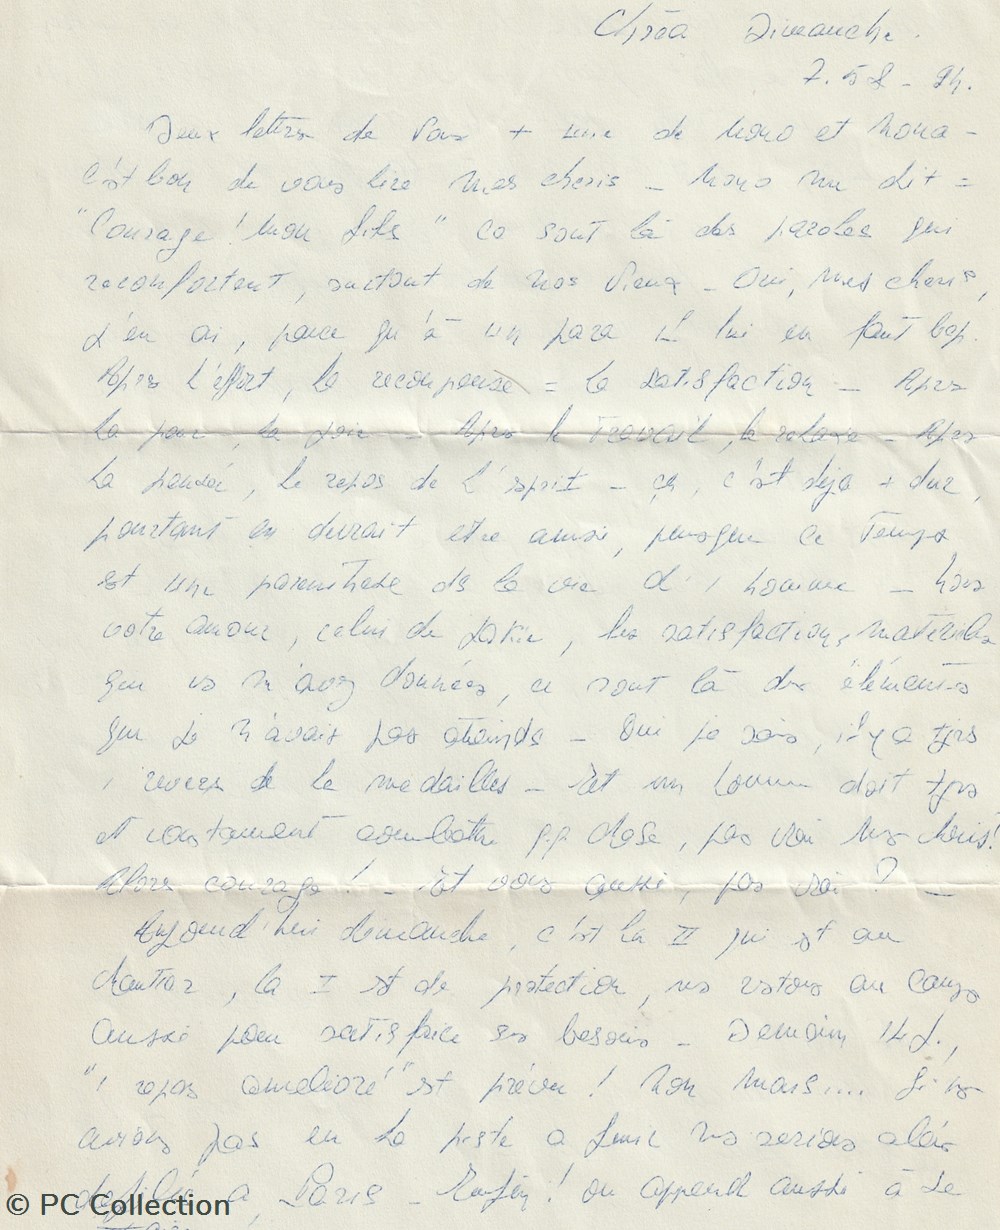 Chréa Dimanche.
7. 58 - 94.
Deux lettres de Vous + une de Mono et Nona -
c'est bon de vous lire mes cheris - Nono me dit =
"Courage! mon fils" ce sont là des paroles qui
reconfortent, surtout de nos Vieux - Oui, mes cheris,
J'en ai, parce qu'à un para il lui en faut bcp.
Après l'effort, la recompense = la satisfaction - Après
la peur, la joie - Après le Travail, la relaxe - Après
la pensée, le repos de l'esprit - ça, c'est deja + dur,
pourtant ça devrait etre ainsi, puisque ce Temps
est une parenthese ds la vie d'1 homme - Hors
votre amour, celui de Jakie, les satisfactions matérielles
que vs m'avez données, ce sont là des éléments
que je n'avais pas atteinds - Oui je sais, il y a tjrs
1 revers de la medailles - Et un homme doit tjrs
et constament combattre q.q. chose, pas vrai mes cheris!
Alors courage! - Et vous aussi, pas vrai? -
Aujourd'hui dimanche, c'est la II qui est au
chantier, la I est de protection, ns restons au camp
aussi pour satisfaire ses besoins - Demain 14 J.,
"1 repas amelioré" est prévu! Non mais.... Si ns
avions pas eu la piste a finir ns serions allés
defiler a Paris - Enfin! on apprend aussi à se
© PC Collection